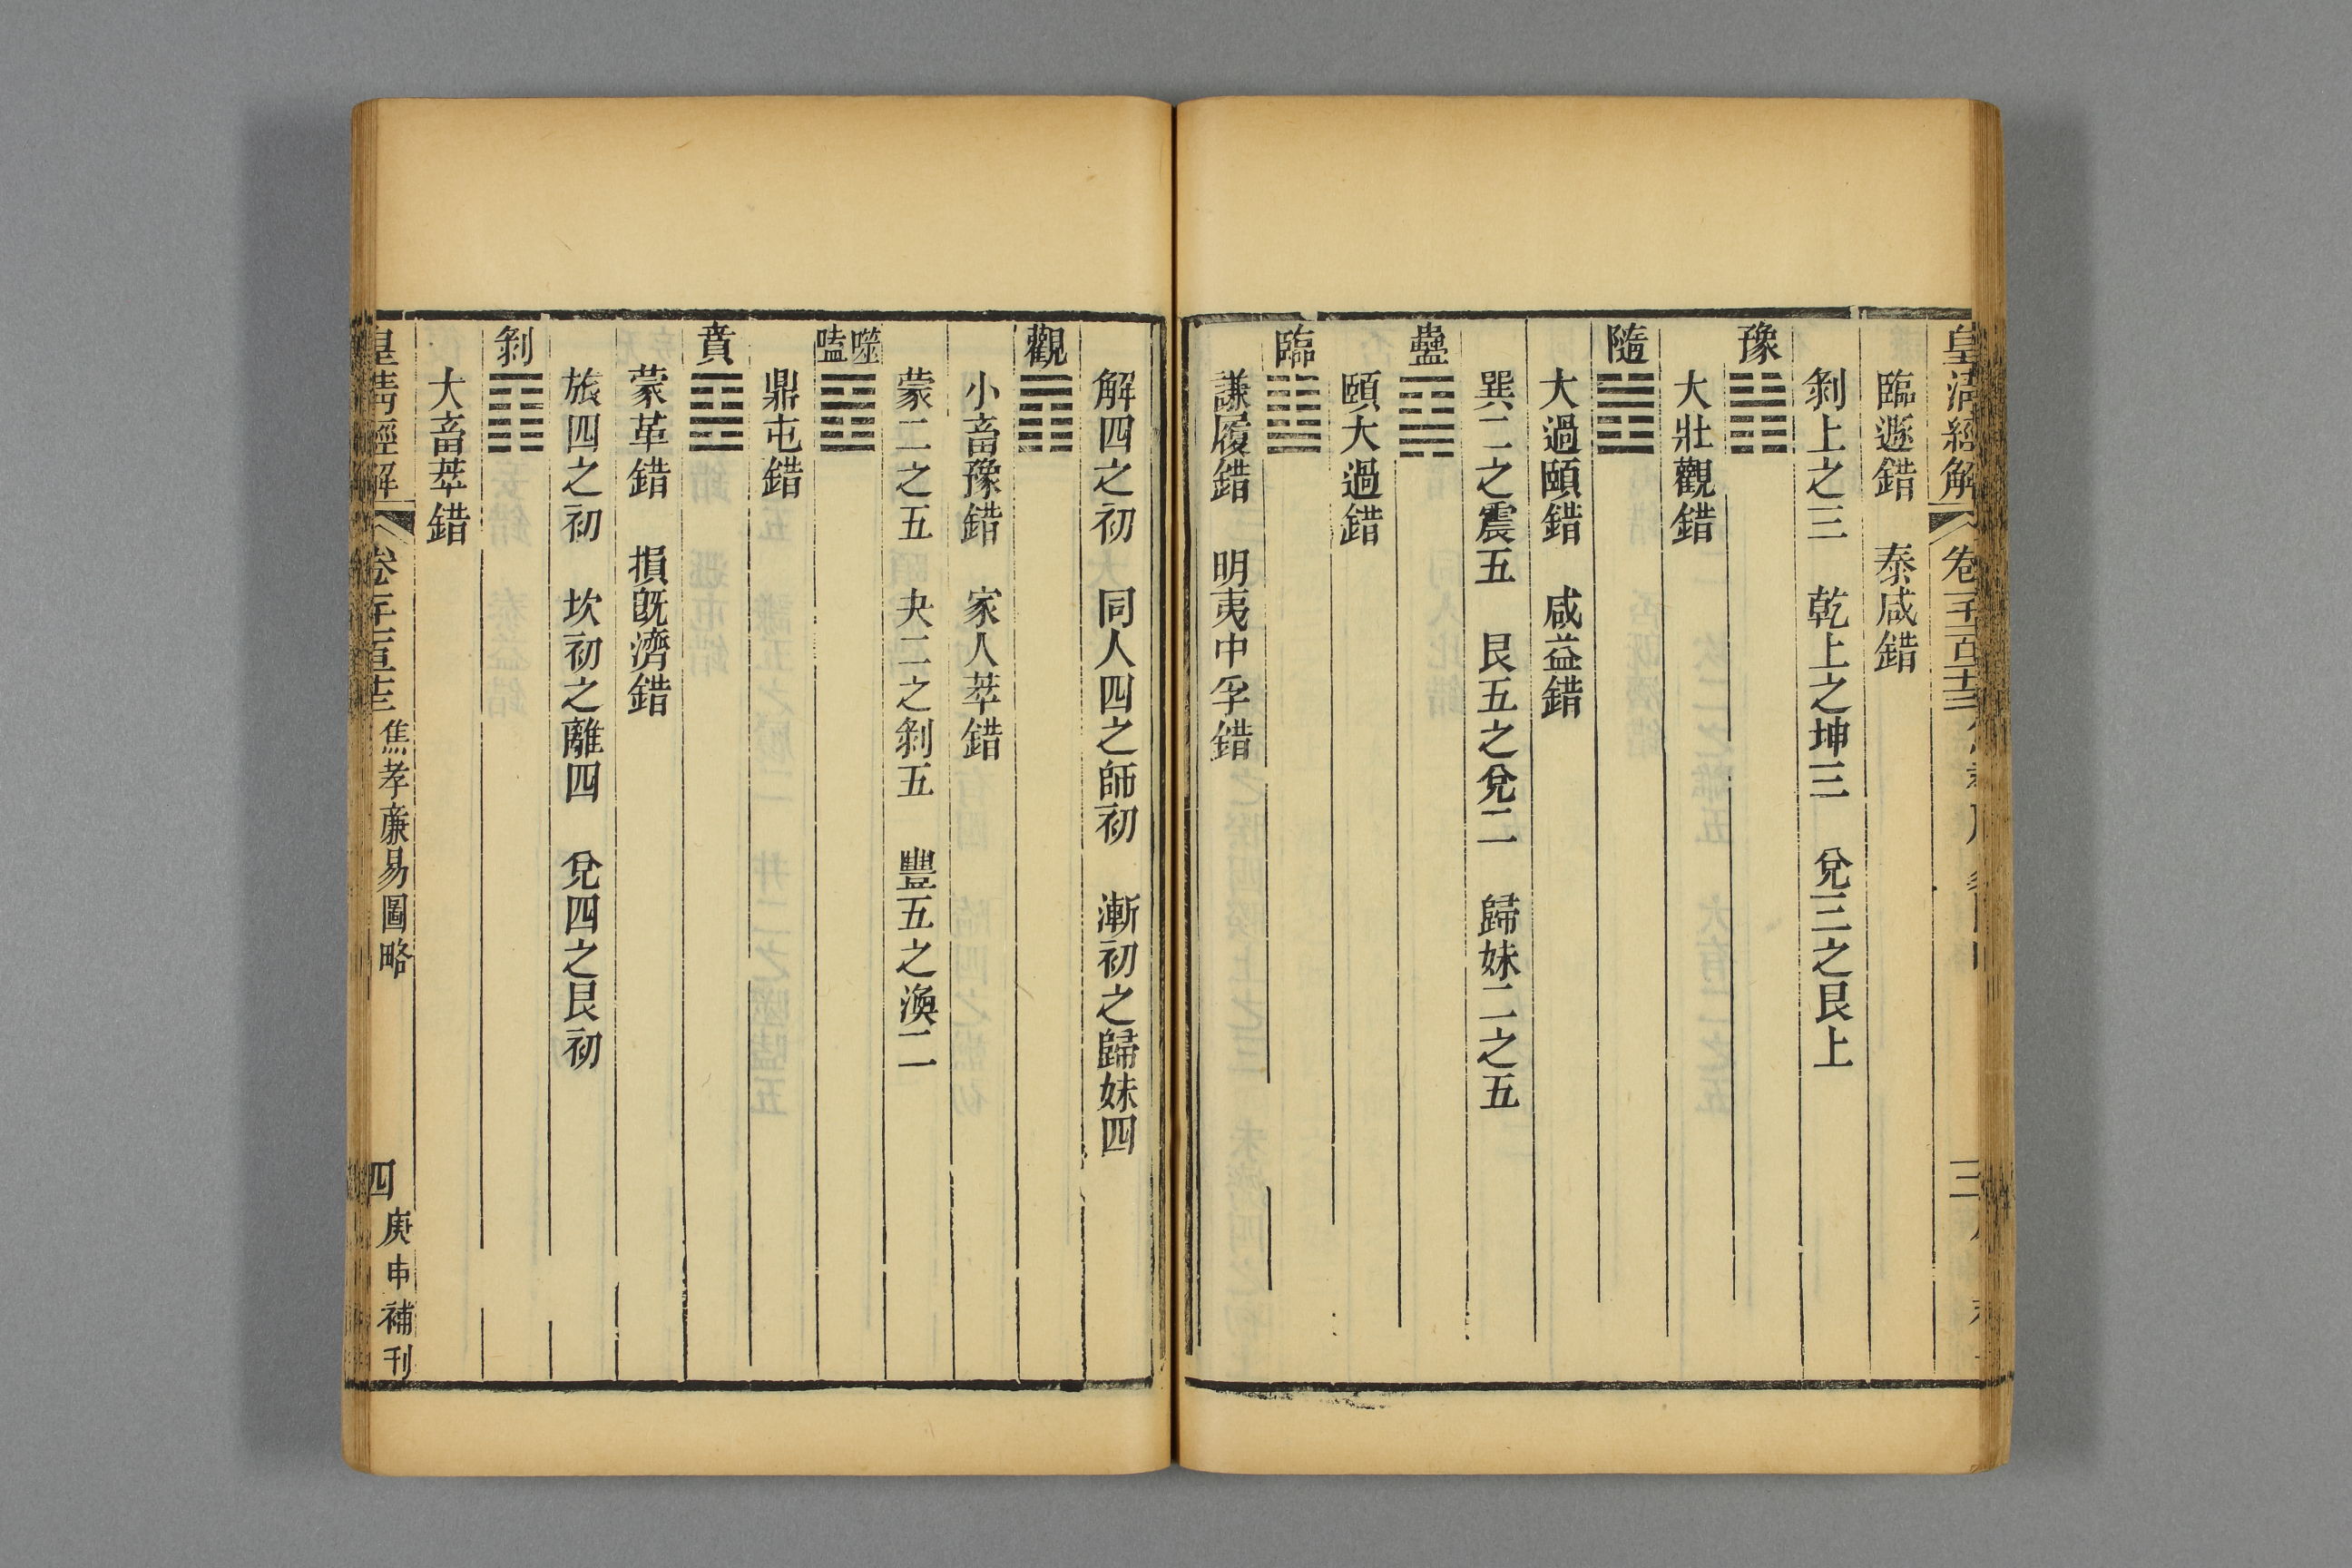 皇清經解
三
臨遯錯　泰咸錯
剝上之三　乾上之坤三　兌三之艮上
豫
大壯觀錯
隨
大過頤錯　咸益錯
巽二之震五　艮五之兌二　歸妹二之五
蠱
頤大過錯
臨
謙履錯　明夷中孚錯
解四之初　同人四之師初　漸初之歸妹四
觀
小畜豫錯　家人萃錯
蒙二之五　夬二之剝五　豐五之渙二
噬嗑
鼎屯錯
賁
蒙革錯　損旣濟錯
旅四之初　坎初之離四　兌四之艮初
剝
大畜萃錯
皇清經解　焦孝廉易圖略　四　庚申補刊